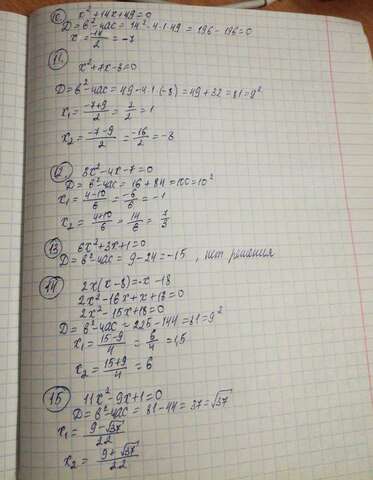 10. x²+14x+49=0
D=b²-4ac=14²-4·1·49=196-196=0
x=-14/2=-7
11.
x²+7x-8=0
D=b²-4ac=49-4·1·(-8)=49+32=81=9²
x₁=(-7+9)/2=2/2=1
x₂=(-7-9)/2=-16/2=-8
12. 3x²-4x-7=0
D=b²-4ac=16+84=100=10²
x₁=(4-10)/6=-6/6=-1
x₂=(4+10)/6=14/6=7/3
13 6x²+3x+1=0
D=b²-4ac=9-24=-15, нет решания
14 2x(x-8)=-x-18
2x²-16x+x+18=0
2x²-15x+18=0
D=b²-4ac=225-144=81=9²
x₁=(15-9)/4=6/4=1,5
x₂=(15+9)/4=6
15 11x²-9x+1=0
D=b²-4ac=81-44=37=√37
x₁=(9-√37)/22
x₂=(9+√37)/22